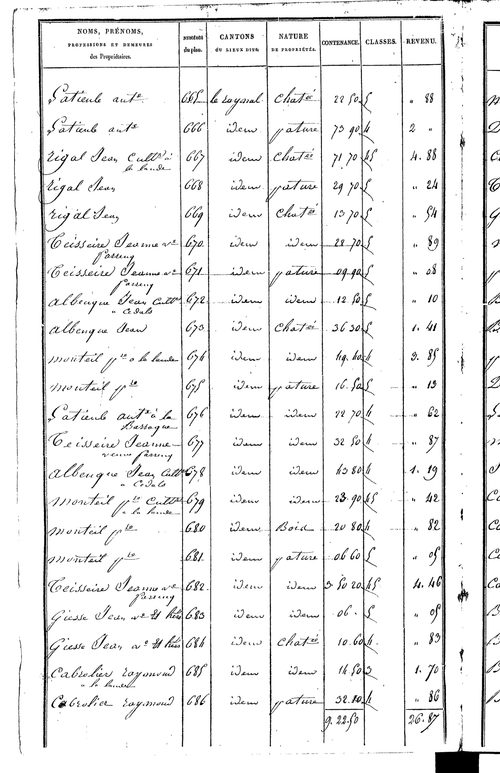 NOMS, PRÉNOMS, PROFESSIONS ET DEMEURES des Propriétaires. NUMÉROS du plan. CANTONS OU LIEUX DITS. NATURE DE PROPRIÉTÉS. CONTENANCE. CLASSES. REVENU.
665 chat.é 22 50 5 " 88
666 idem pature 73 90 4 2 "
Rigal Jean Cult.r à la lande 667 idem Chat.é 71 70 45 4. 88
Rigal Jean 668 idem pature 29 70 5 " 24
Rigal Jean 669 idem Chat.é 13 70 5 " 54
Teisseire Jeanne v.e 670 idem idem 22 70 5 " 89
Teisseire Jeanne v.e 671 idem pature 09 90 5 " 08
albenque Jean Cult.r 672 idem idem 12 50 5 " 10
albenque Jean 673 idem Chat.é 36 30 5 1. 41
monteil p.re à la lande 674 idem idem 49 40 4 3. 85
monteil p.re 675 idem pature 16 50 5 " 13
676 idem idem 22 70 4 " 62
Teisseire Jeanne 677 idem idem 32 50 4 " 87
albenque Jean Cult.r 678 idem idem 43 80 4 1. 19
monteil p.re Cult.r à la lande 679 idem idem 23 90 45 " 42
monteil p.re 680 idem Bois 20 80 4 " 82
monteil p.re 681 idem pature 06 60 5 " 05
Teisseire Jeanne v.e 682 idem idem 3 50 20 45 4. 46
Giesse Jean 683 idem idem 06 . 5 " 05
Giesse Jean 684 idem Chat.é 10 60 4 " 83
Cabrolier raymond à la lande 685 idem idem 14 50 3 1. 70
Cabrolier raymond 686 idem pature 32 10 4 " 86
9. 22. 50 26. 87